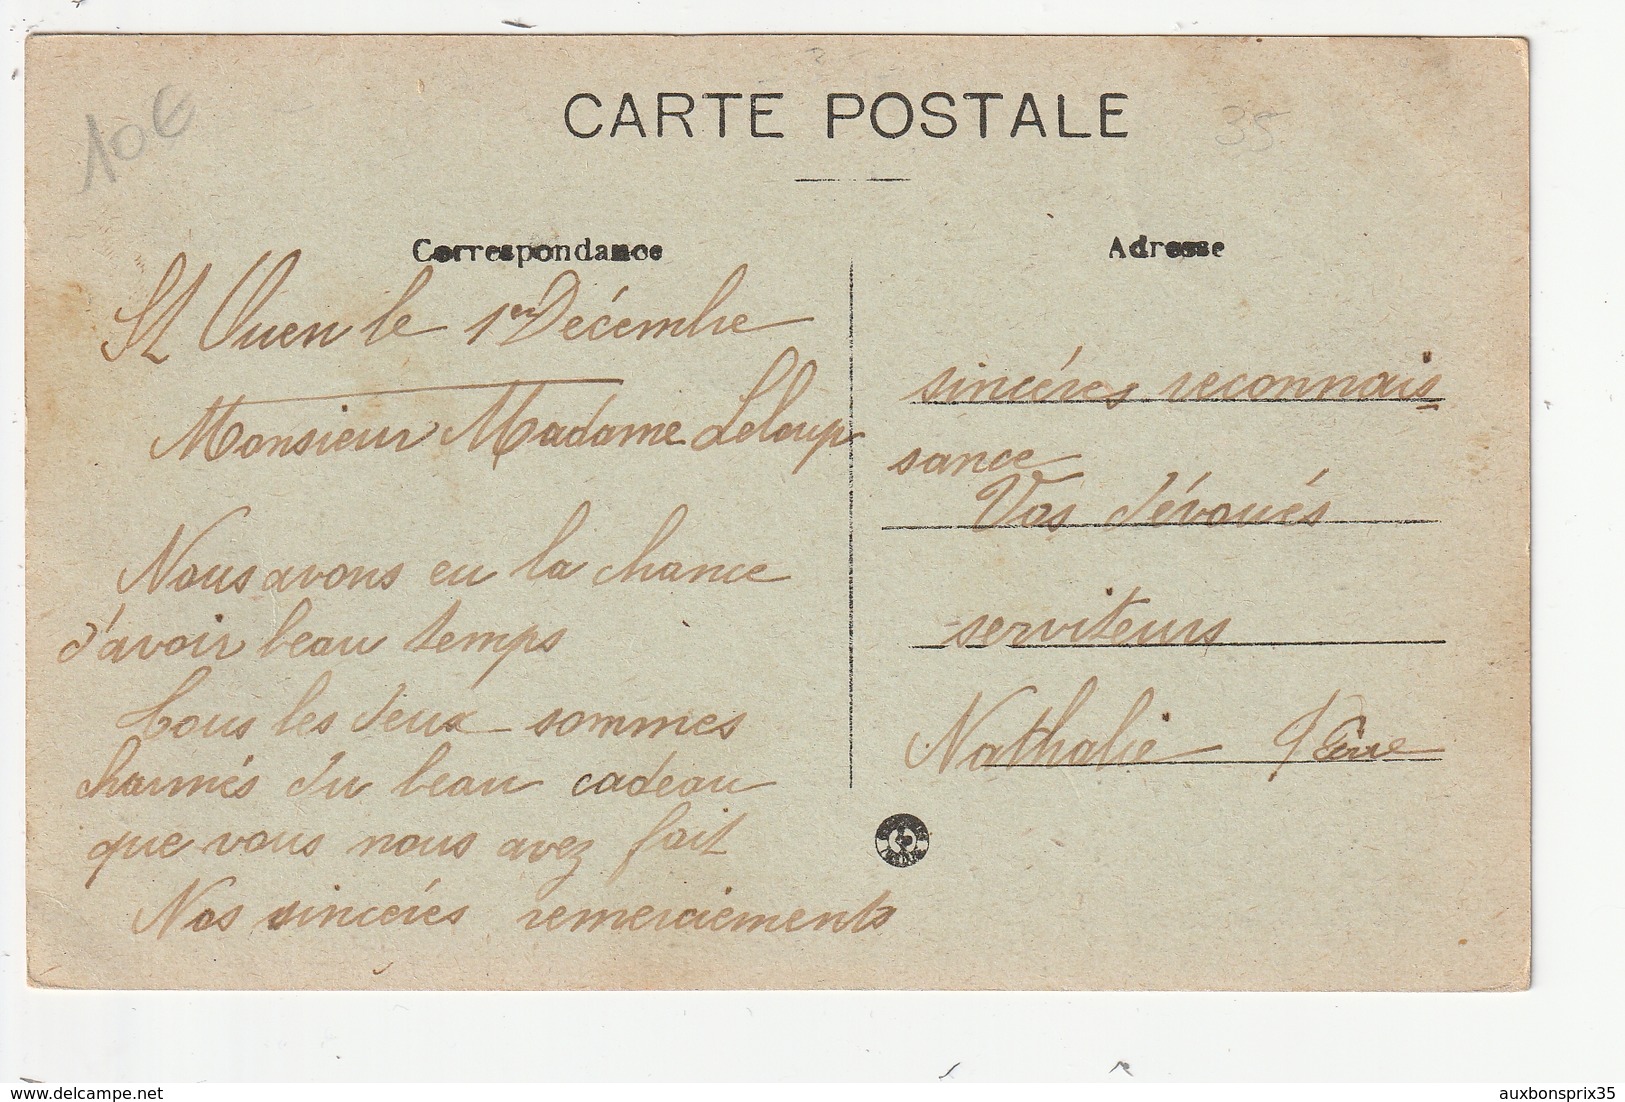 10€
CARTE POSTALE
35
Correspondance
St Ouen le 1er Décembre
Monsieur Madame Leloup
Nous avons eu la chance
d'avoir beau temps
Tous les deux sommes
charmés du beau cadeau
que vous nous avez fait
Nos sincéres remerciements
Adresse
sincéres reconnais
sance
Vos dévoués
serviteurs
Nathalie
www.delcampe.net
auxbonsprix35